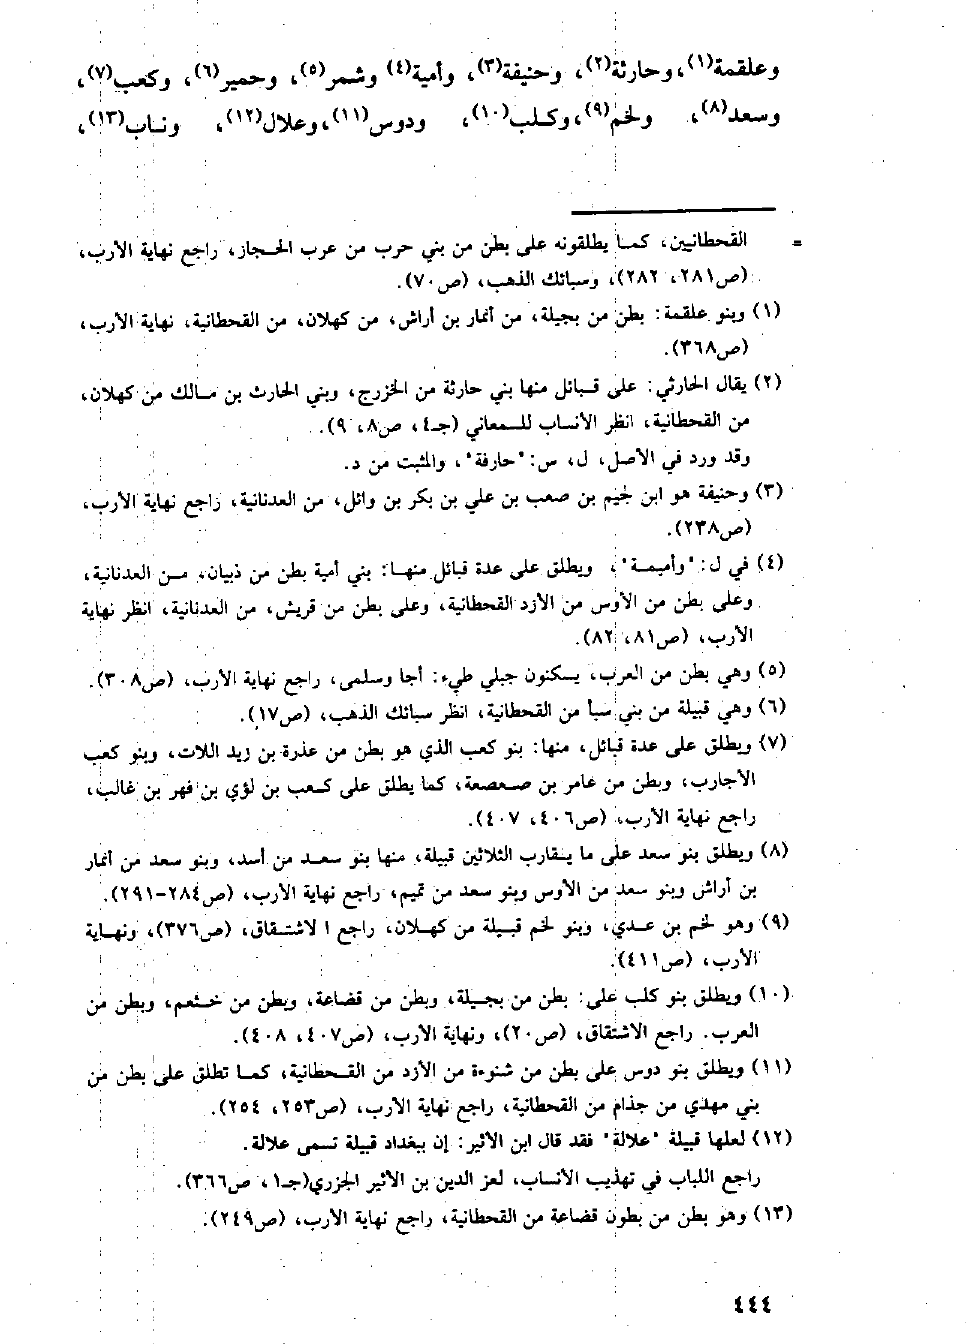 وعلقمة(١)، وحارثة(٢)، وحنيفة(٣)، وأمية(٤) وشمر(٥)، وحمير(٦)، وكعب(٧)،
وسعد(٨)، ولخم(٩)، وكلب(١٠)، ودوس(١١)، وعلال(١٢)، وناب(١٣)،
= القحطانيين، كما يطلقونه على بطن من بني حرب من عرب الحجاز، راجع نهاية الأرب،
(ص٢٨١، ٢٨٢)، وسبائك الذهب، (ص٧٠).
(١) وبنو علقمة: بطن من بجيلة، من أنمار بن أراش، من كهلان، من القحطانية، نهاية الأرب،
(ص٣٦٨).
(٢) يقال الحارثي: على قبائل منها بني حارثة من الخزرج، وبني الحارث بن مالك من كهلان،
من القحطانية، انظر الأنساب للسمعاني (جـ٤، ص٨، ٩).
وقد ورد في الأصل، ل، س: "حارفة"، والمثبت من د.
(٣) وحنيفة هو ابن لجيم بن صعب بن علي بن بكر بن وائل، من العدنانية، راجع نهاية الأرب،
(ص٢٣٨).
(٤) في ل: "وأميمة"، ويطلق على عدة قبائل منها: بني أمية بطن من ذبيان، من العدنانية،
وعلى بطن من الأوس من الأزد القحطانية، وعلى بطن من قريش، من العدنانية، انظر نهاية
الأرب، (ص٨١، ٨٢).
(٥) وهي بطن من العرب، يسكنون جبلي طيء: أجا وسلمى، راجع نهاية الأرب، (ص٣٠٨).
(٦) وهي قبيلة من بني سبأ من القحطانية، انظر سبائك الذهب، (ص١٧).
(٧) ويطلق على عدة قبائل، منها: بنو كعب الذي هو بطن من عذرة بن زيد اللات، وبنو كعب
الأجارب، وبطن من عامر بن صعصعة، كما يطلق على كعب بن لؤي بن فهر بن غالب،
راجع نهاية الأرب، (ص٤٠٦، ٤٠٧).
(٨) ويطلق بنو سعد على ما يقارب الثلاثين قبيلة، منها بنو سعد من أسد، وبنو سعد من أنمار
بن أراش وبنو سعد من الأوس وبنو سعد من تميم، راجع نهاية الأرب، (ص٢٨٤-٢٩١).
(٩) وهو لخم بن عدي، وبنو لخم قبيلة من كهلان، راجع ا لاشتقاق، (ص٣٧٦)، ونهاية
الأرب، (ص٤١١).
(١٠) ويطلق بنو كلب على: بطن من بجيلة، وبطن من قضاعة، وبطن من خثعم، وبطن من
العرب. راجع الاشتقاق، (ص٢٠)، ونهاية الأرب، (ص٤٠٧، ٤٠٨).
(١١) ويطلق بنو دوس على بطن من شنوءة من الأزد من القحطانية، كما تطلق على بطن من
بني مهدي من جذام من القحطانية، راجع نهاية الأرب، (ص٢٥٣، ٢٥٤).
(١٢) لعلها قبيلة "علالة" فقد قال ابن الأثير: إن ببغداد قبيلة تسمى علالة.
راجع اللباب في تهذيب الأنساب، لعز الدين بن الأثير الجزري(جـ١، ص٣٦٦).
(١٣) وهو بطن من بطون قضاعة من القحطانية، راجع نهاية الأرب، (ص٢٤٩).
٤٤٤